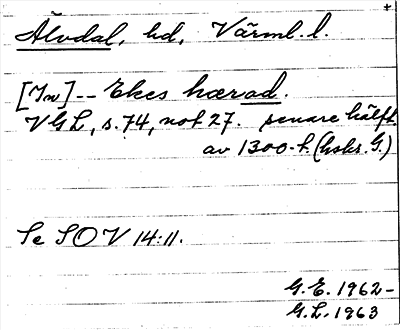 Älvdal, hd, Värml. l.
[In] -- Ekes hærad.
VGL, s. 74, not 27. senare hälft.
av 1300-t. (hskr. G.)
Se SOV 14:11.
G.E. 1962-
G.L. 1963